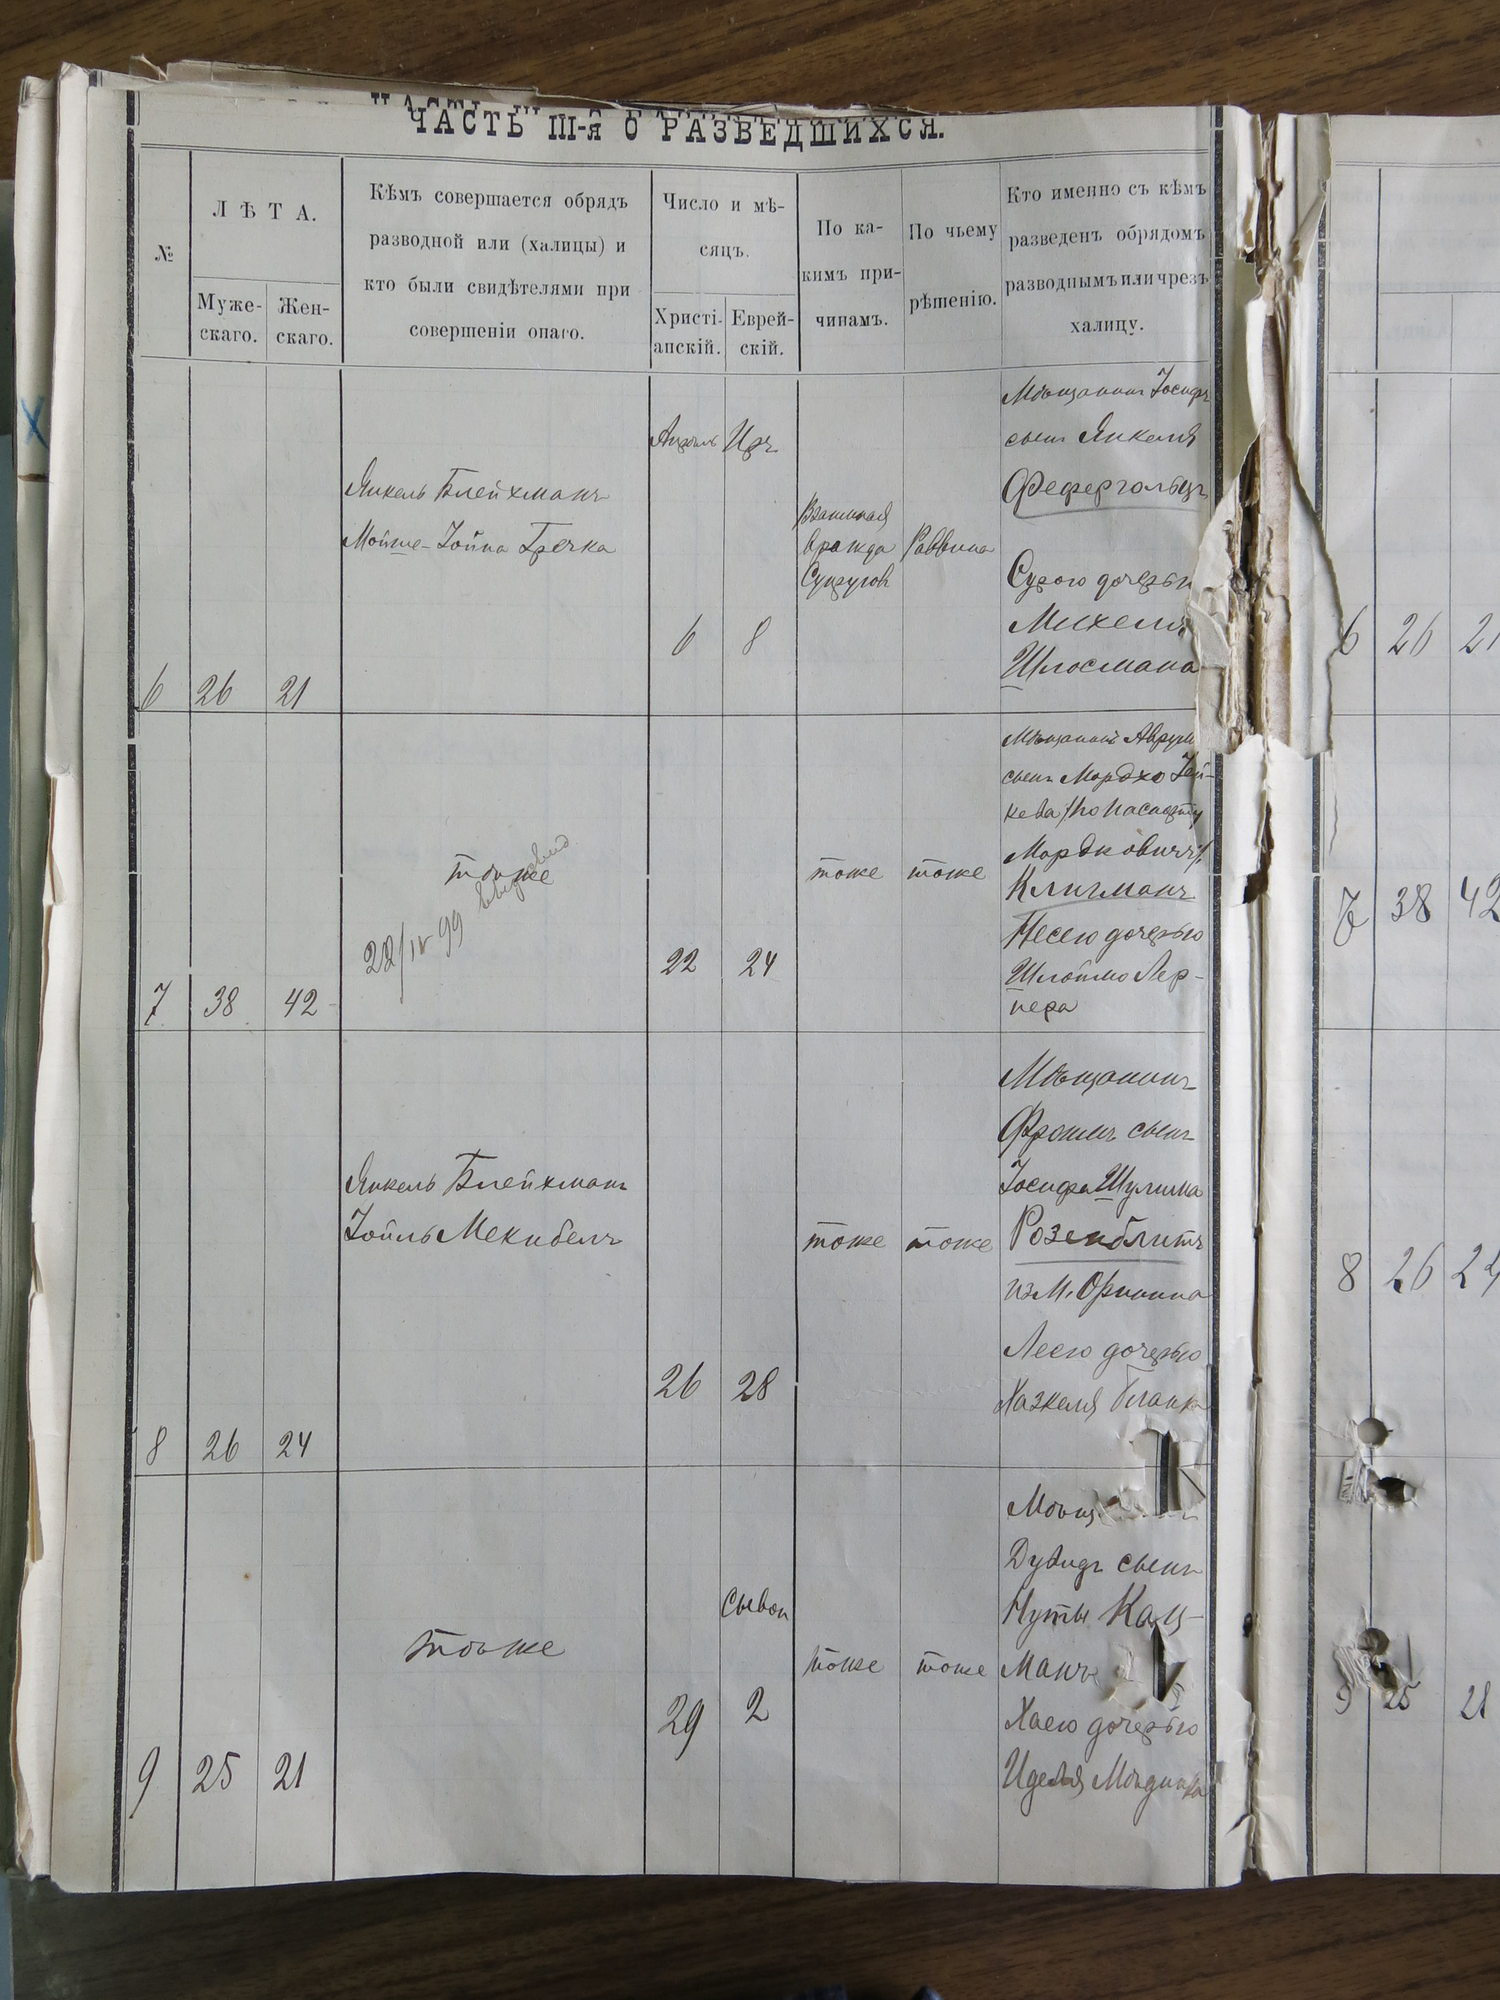 ЧАСТЬ III-я О РАЗВЕДШИХСЯ.
№
ЛѢТА.
Муже-
скаго.
Жен-
скаго.
Кѣмъ совершается обрядъ
разводной или (халицы) и
кто были свидѣтелями при
совершеніи онаго.
Число и мѣ-
сяцъ.
Христі-
анскій.
Еврей-
скій.
По ка-
кимъ при-
чинамъ.
По чьему
рѣшенію.
Кто именно съ кѣмъ
разведенъ обрядомъ
разводнымъ или чрезъ
халицу.
6
26
21
Янкель Блейхманъ
Мойше-Іойна Гречка
Апрель
6
Иръ
8
Взаимная
вражда
Супругов
Раввина
Мѣщанинъ Іосифъ
сынъ Янкеля
Фефергольцъ
Сурою дочерью
Михеля
Шлосмана
7
38
42
тоже
22/IV 99
22
24
тоже
тоже
Мѣщанинъ Аврум
сынъ Мордхо Іей-
кева /по паспорту
Мордковичъ/
Клигманъ
Несею дочерью
Шлоймо Лер-
нера
8
26
24
Янкель Блейхманъ
Іойль Мекибелъ
26
28
тоже
тоже
Мѣщанинъ
Фроимъ сынъ
Іосифа Шулима
Розенблитъ
из М. Оринина
Лею дочерью
Хазкеля Бланка
9
25
21
тоже
29
Сывон
2
тоже
тоже
Мѣщ
Дувидъ сынъ
Нуты Кац-
манъ
Хаею дочерью
Иделя
6 26 21
7 38 42
8 26 24
9 25 21